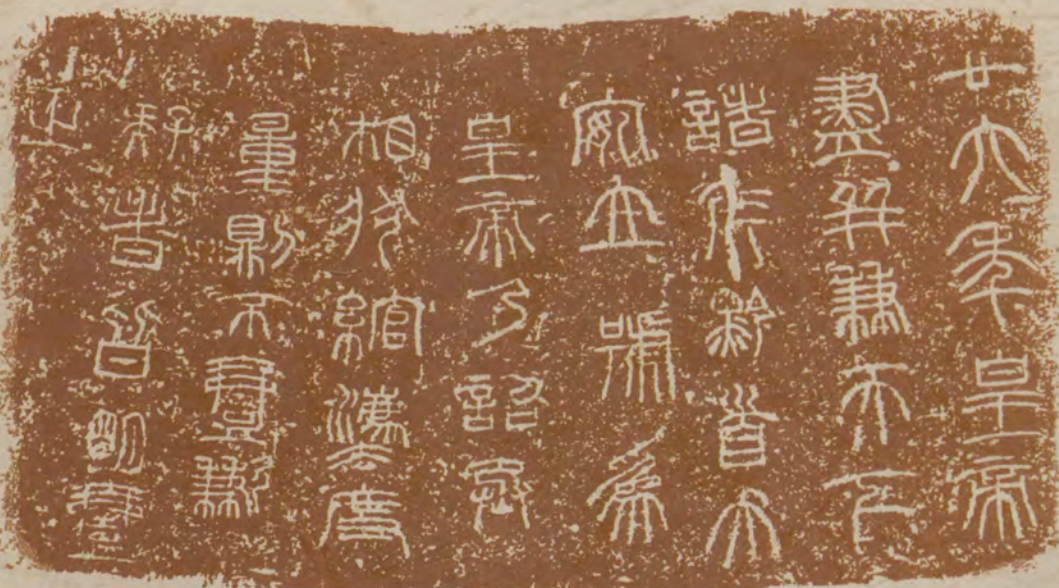 廿六年皇帝
盡并兼天下
諸矦黔首大
安立號爲
皇帝乃詔丞
相狀綰灋度
量則不壹歉
疑者皆明壹
之